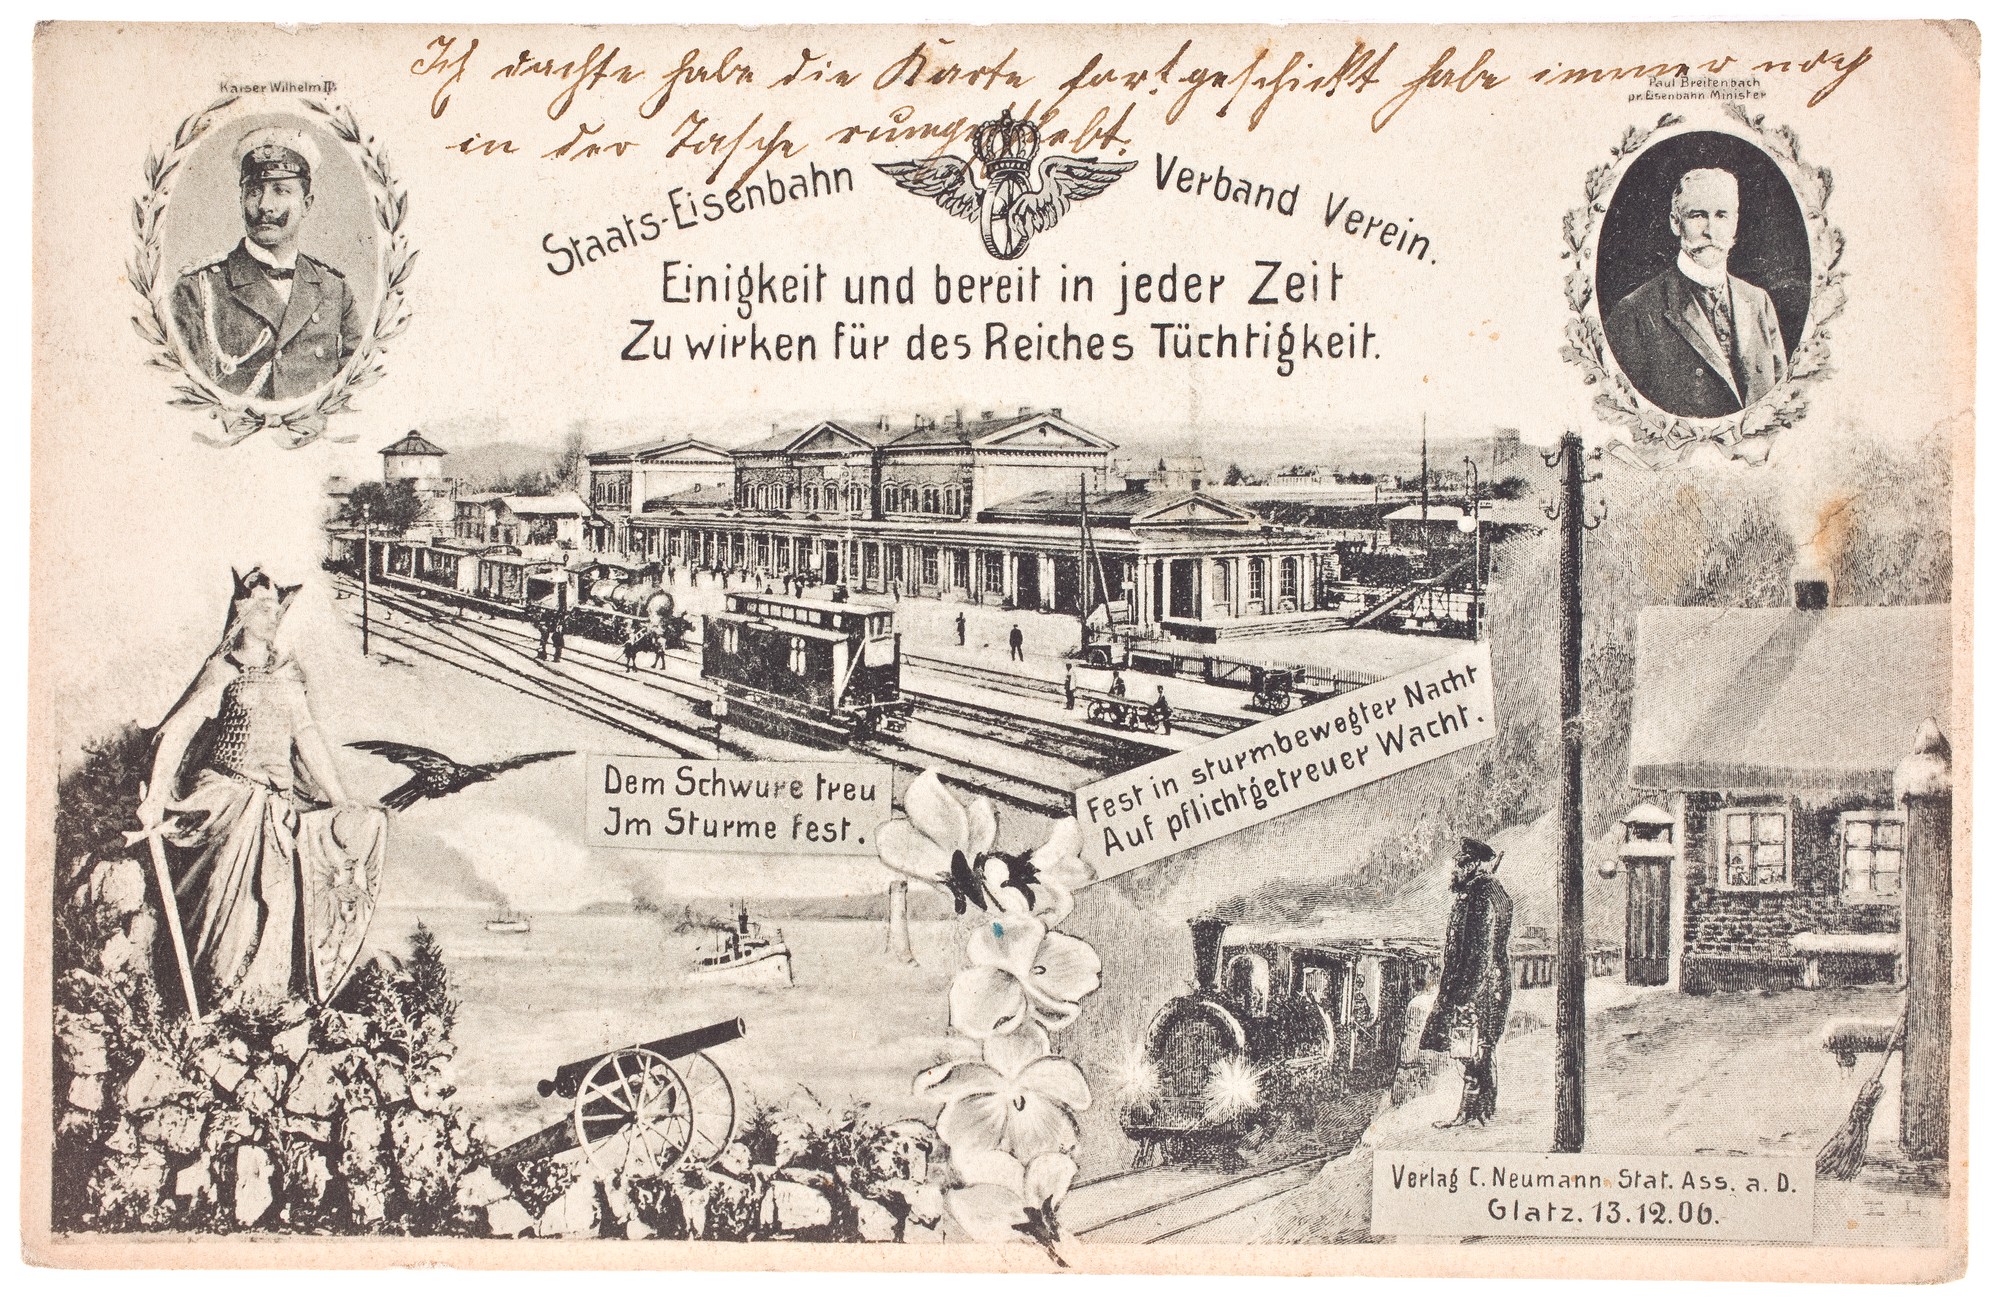 Ich dachte habe die Karte fortgeschickt habe immer noch
in der Tasche rumgeschebt.
Kaiser Wilhelm II.
Paul Breitenbach
pr. Eisenbahn Minister
Staats-Eisenbahn Verband Verein.
Einigkeit und bereit in jeder Zeit
Zu wirken für des Reiches Tüchtigkeit.
Dem Schwure treu
Im Sturme fest.
Fest in sturmbewegter Nacht
Auf pflichtgetreuer Wacht.
Verlag C. Neumann Stat. Ass. a. D.
Glatz. 13.12.06.